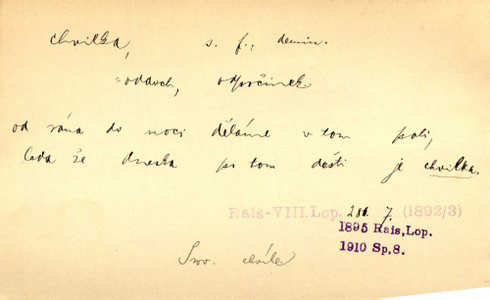 chvilka, s. f., demin.
=oddech, odpočinek.
od rána do noci děláme v tom poli,
leda že dneska po tom dešti je chvilka.
Rais-VIII, Lop. 281. 7. (1892/3)
1895 Rais, Lop.
1910 Sp, 8.
Srov. chvíle